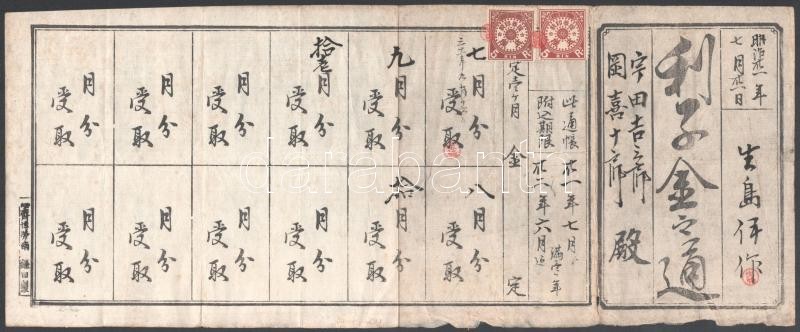 明治廿一年
七月廿一日
生島伊作
利子金之通
宇田吉三郎
岡喜十郎
殿
此通帳廿一年七月
満壱年
附込期限廿二年六月迄
定壱ヶ月
金
定
七月分
受取
八月分
受取
九月分
受取
拾月分
受取
拾壱月分
受取
月分
受取
月分
受取
月分
受取
月分
受取
月分
受取
月分
受取
月分
受取
月分
受取
月分
受取
5 R
SEN
5 R
SEN
darabanth